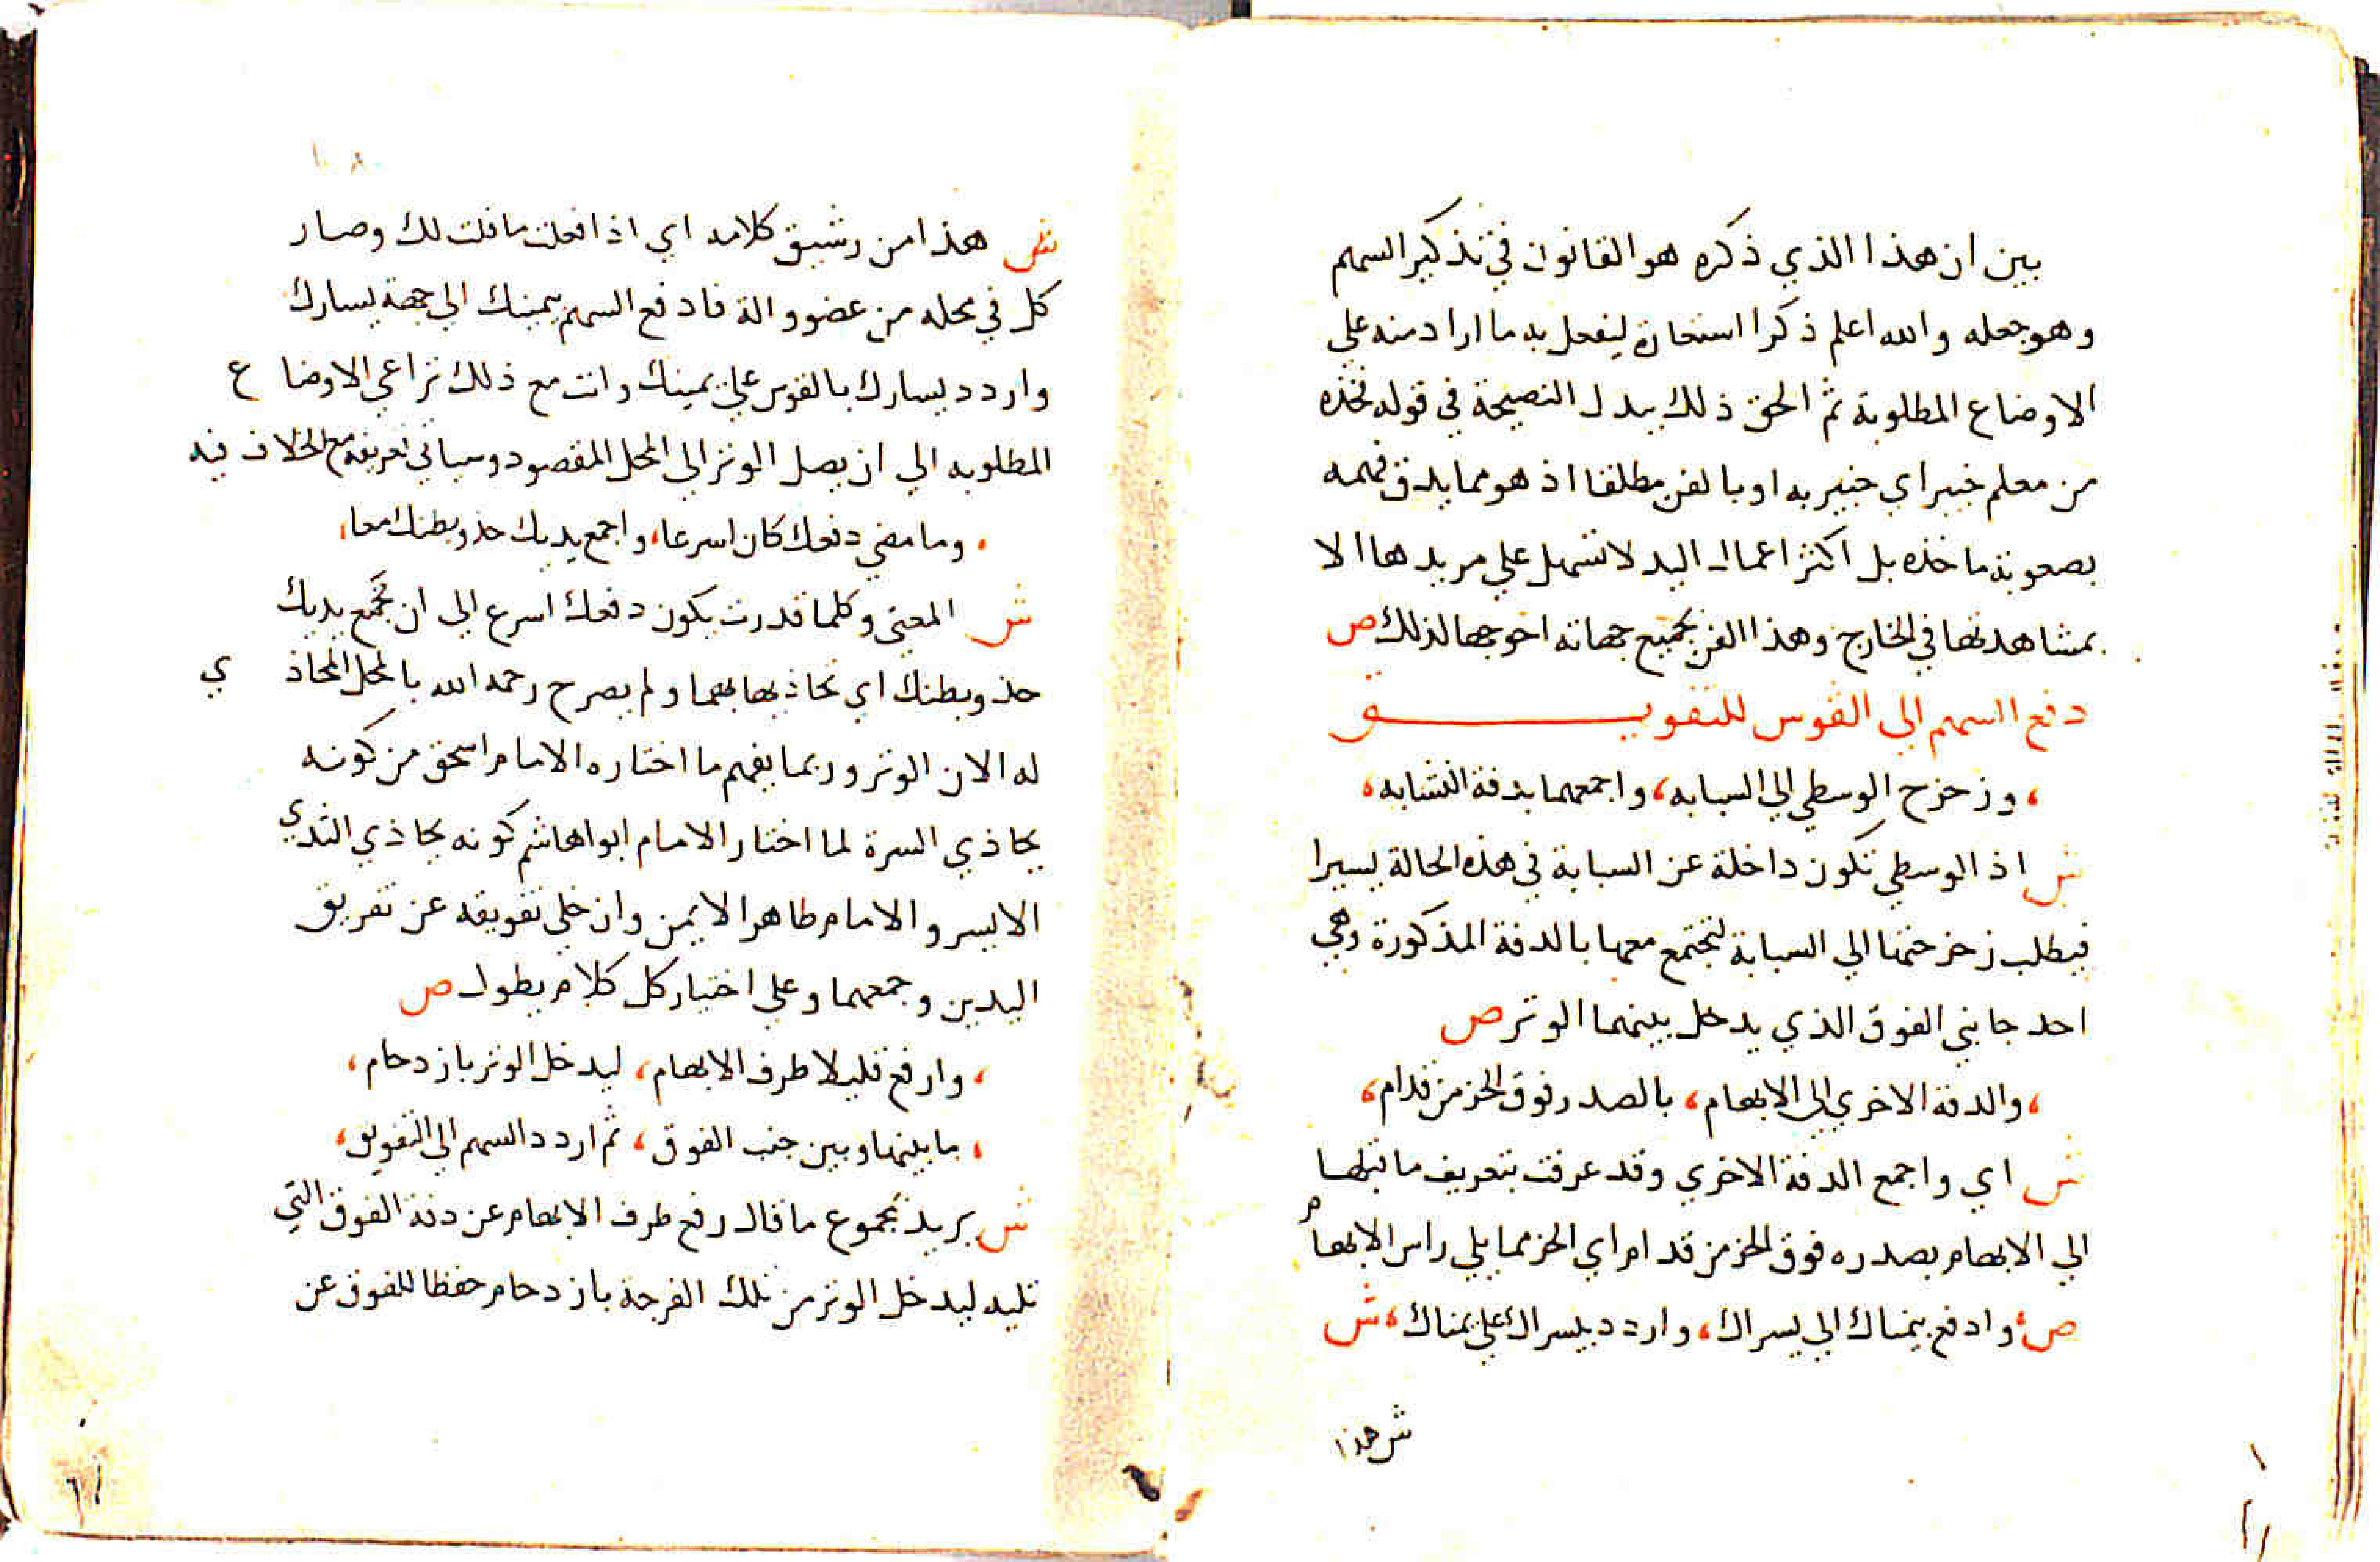 بين ان هذا الذي ذكره هو القانون في تذكير السهم
وهو جعله والله اعلم ذكرا استعارة ليفعل به ما اراد منه علي
الاوضاع المطلوبة ثم الحق ذلك ببدل النصيحة في قوله فخذه
من معلم خبير اي خبير به او بالفن مطلقا اذ هو مما يدق فهمه
بصعوبة ماخذه بل اكثر اعمال اليد لا تسهل علي مريدها الا
بمشاهدتها في الخارج وهذا الفن بجميع جهاته احوجها لذلك ص
دفع السهم الي القوس للتفويق
، وزحزح الوسطي الي السبابه، واجمعهما بدفة النشابه،
ش اذ الوسطي تكون داخلة عن السبابة في هذه الحالة يسيرا
فيطلب زحزحتها الي السبابة لتجتمع معها بالدفة المذكورة وهي
احد جانبي الفوق الذي يدخل بينهما الوتر ص
، والدفة الاخري الي الابهام، بالصدر فوق الحز من قدام،
ش اي واجمع الدفة الاخري وقد عرفت بتعريف ما قبلها
الي الابهام بصدره فوق الحز من قدام اي الحز مما يلي راس الابهام
ص، وادفع بيمناك الي يسراك، واردد بيسراك علي يمناك، ش
ش هذا
ش هذا من رشيق كلامه اي اذا فعلت ما قلت لك وصار
كل في محله من عضو والة فادفع السهم بيمينك الي جهة يسارك
واردد يسارك بالقوس علي يمينك وانت مع ذلك تراعي الاوضاع
المطلوبه الي ان يصل الوتر الي المحل المقصود وسياتي تعريفه مع الخلاف فيه
، وما مضي دفعك كان اسرعا، واجمع يديك حذو بطنك معا،
ش المعني وكلما قدرت يكون دفعك اسرع الي ان تجمع يديك
حذو بطنك اي تحاذيها بهما ولم يصرح رحمه الله بالمحل المحاذي
له الان الوتر وربما يفهم ما اختاره الامام اسحق من كونه
يحاذي السرة لما اختار الامام ابوا هاشم كونه يحاذي الثدي
الايسر والامام طاهر الايمن وان خلي تفويقه عن تفريق
اليدين وجمعهما وعلي اختيار كل كلام يطول ص
، وارفع قليلا طرف الابهام، ليدخل الوتر بازدحام،
، ما بينها وبين جنب الفوق، ثم اردد السهم الي التفويق،
ش يريد بمجموع ما قال رفع طرف الابهام عن دفة الفوق التي
تليه ليدخل الوتر من تلك الفرجة بازدحام حفظا للفوق عن